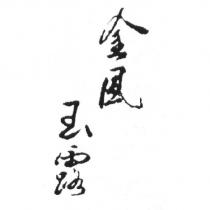 金風
玉露